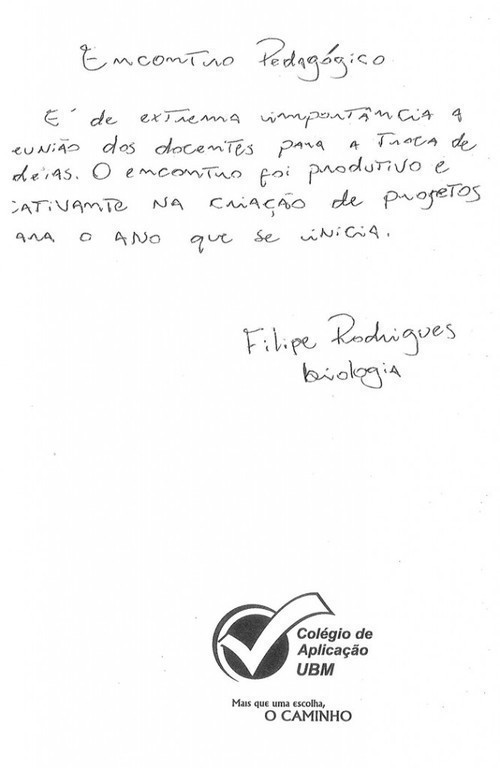 Encontro Pedagógico
É de extrema importância a
eunião dos docentes para a troca de
deias. O encontro foi produtivo e
cativante na criação de projetos
ara o ano que se inicia.
Filipe Rodrigues
biologia
Colégio de
Aplicação
UBM
Mais que uma escolha,
O CAMINHO